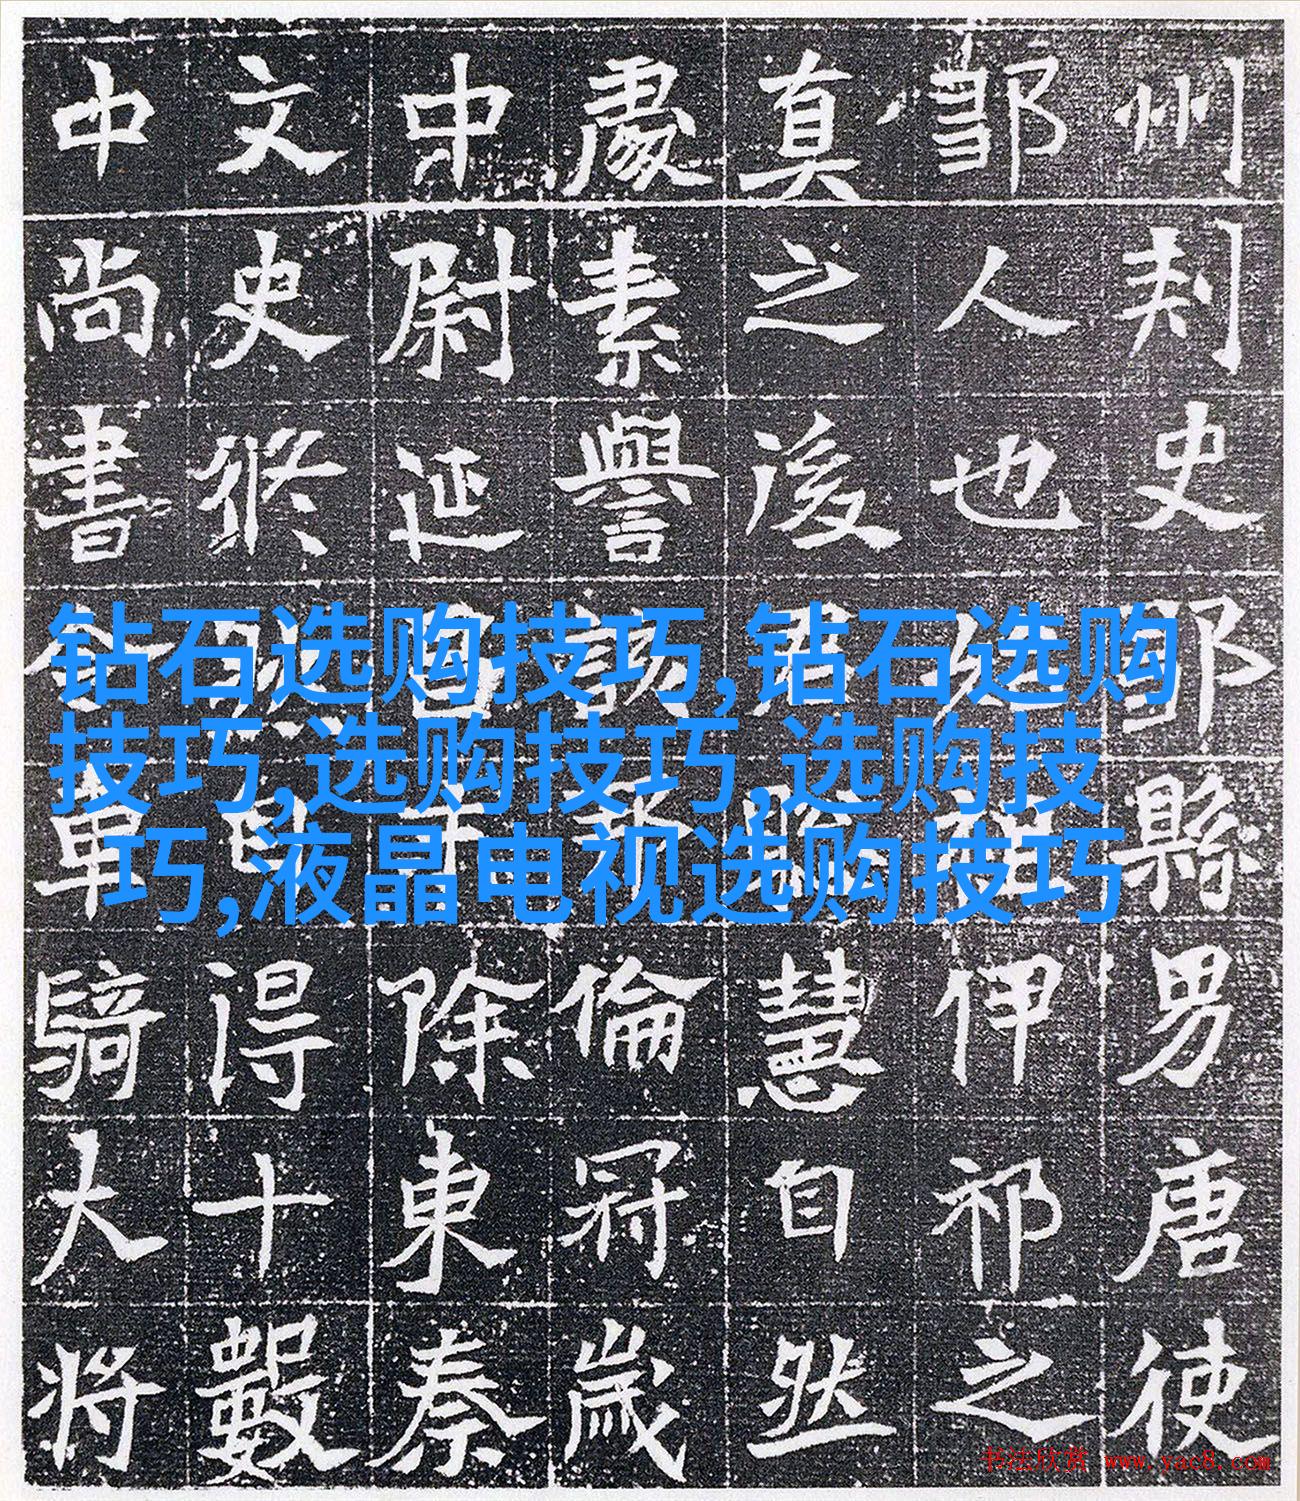 州刾史鄒縣男唐使
鄒人也伊祁之
真之後君聰慧自然
處素譽倫冠歲
中尉延昌中除東秦
文史得十數
中尚書車騎大將
钻石选购技巧,钻石选购
技巧,选购技巧,选购技
巧,液晶电视选购技巧
书法欣赏 www.yac8.com